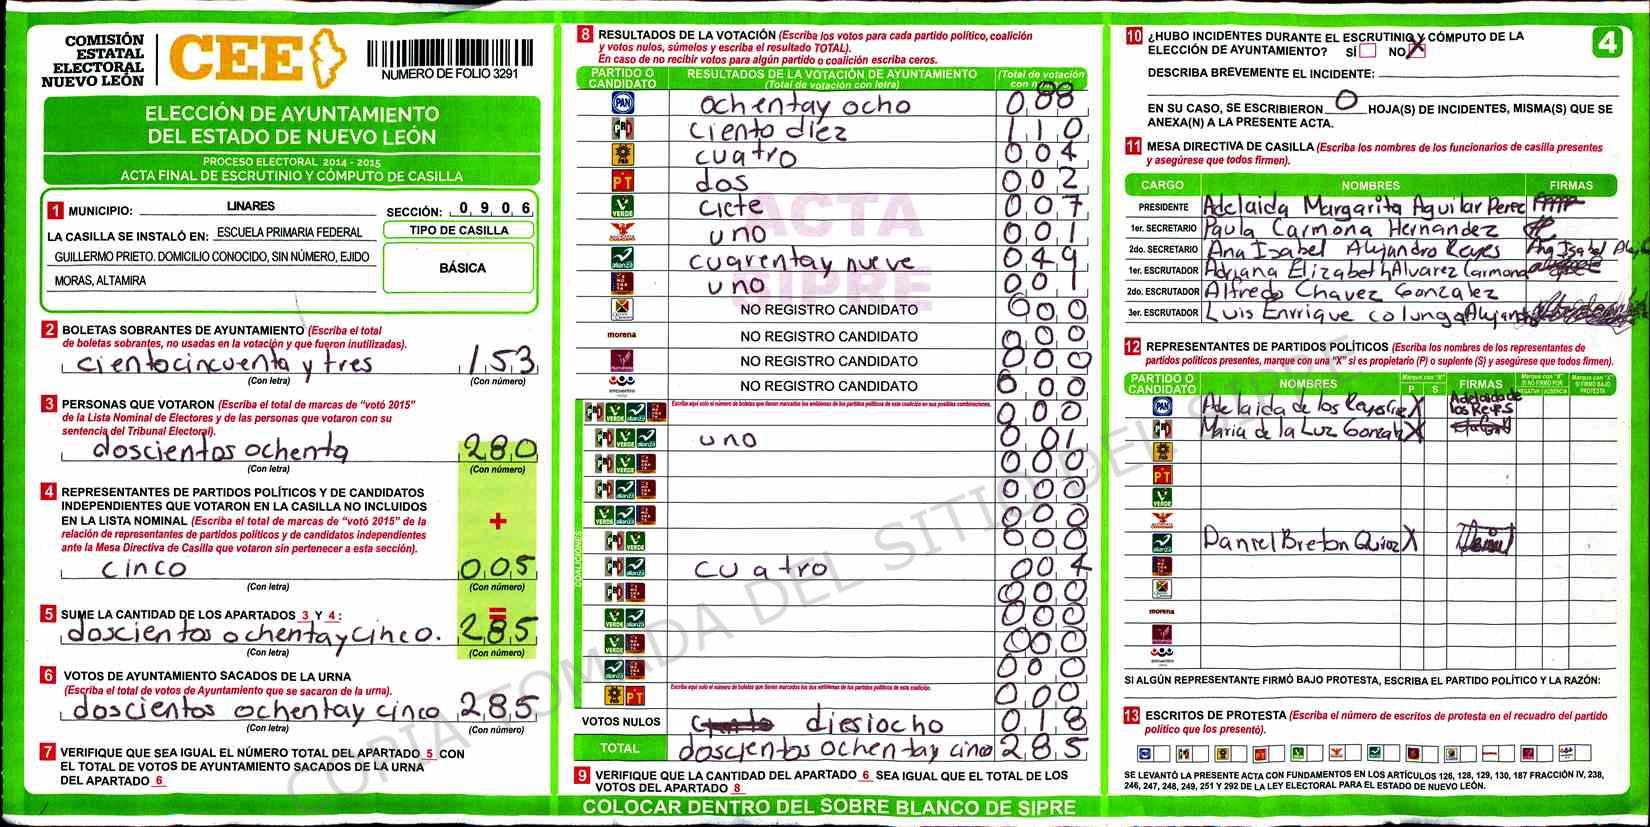 COMISIÓN
ESTATAL
ELECTORAL
NUEVO LEÓN
CEE
NUMERO DE FOLIO 3291
ELECCIÓN DE AYUNTAMIENTO
DEL ESTADO DE NUEVO LEÓN
PROCESO ELECTORAL 2014 - 2015
ACTA FINAL DE ESCRUTINIO Y CÓMPUTO DE CASILLA
1 MUNICIPIO: LINARES SECCIÓN: 0906
LA CASILLA SE INSTALÓ EN: ESCUELA PRIMARIA FEDERAL
GUILLERMO PRIETO. DOMICILIO CONOCIDO, SIN NÚMERO, EJIDO
MORAS, ALTAMIRA
TIPO DE CASILLA
BÁSICA
2 BOLETAS SOBRANTES DE AYUNTAMIENTO (Escriba el total
de boletas sobrantes, no usadas en la votación y que fueron inutilizadas).
ciento cincuenta y tres 153
(Con letra) (Con número)
3 PERSONAS QUE VOTARON (Escriba el total de marcas de "votó 2015"
de la Lista Nominal de Electores y de las personas que votaron con su
sentencia del Tribunal Electoral).
doscientos ochenta 280
(Con letra) (Con número)
4 REPRESENTANTES DE PARTIDOS POLÍTICOS Y DE CANDIDATOS
INDEPENDIENTES QUE VOTARON EN LA CASILLA NO INCLUIDOS
EN LA LISTA NOMINAL (Escriba el total de marcas de "votó 2015" de la
relación de representantes de partidos políticos y de candidatos independientes
ante la Mesa Directiva de Casilla que votaron sin pertenecer a esta sección).
+
cinco 005
(Con letra) (Con número)
=
5 SUME LA CANTIDAD DE LOS APARTADOS 3 Y 4:
doscientos ochenta y cinco. 285
(Con letra) (Con número)
6 VOTOS DE AYUNTAMIENTO SACADOS DE LA URNA
(Escriba el total de votos de Ayuntamiento que se sacaron de la urna).
doscientos ochenta y cinco 285
(Con letra) (Con número)
7 VERIFIQUE QUE SEA IGUAL EL NÚMERO TOTAL DEL APARTADO 5 CON
EL TOTAL DE VOTOS DE AYUNTAMIENTO SACADOS DE LA URNA
DEL APARTADO 6
8 RESULTADOS DE LA VOTACIÓN (Escriba los votos para cada partido político, coalición
y votos nulos, súmelos y escriba el resultado TOTAL).
En caso de no recibir votos para algún partido o coalición escriba ceros.
PARTIDO O CANDIDATO
RESULTADOS DE LA VOTACIÓN DE AYUNTAMIENTO
(Total de votación con letra)
(Total de votación
PAN ochenta y ocho 088
PRI ciento diez 110
PRD cuatro 004
PT dos 002
VERDE ciete 007
uno 001
alianza cuarenta y nueve 049
uno 001
NO REGISTRO CANDIDATO 000
morena NO REGISTRO CANDIDATO 000
NO REGISTRO CANDIDATO 000
encuentro NO REGISTRO CANDIDATO 000
ACTA
SIPRE
COALICIONES
Escriba aquí solo el número de boletas que tienen marcados los emblemas de los partidos políticos de esta coalición en sus posibles combinaciones.
000
uno 001
000
000
000
000
cuatro 004
000
000
000
000
Escriba aquí solo el número de boletas que tienen marcados los dos emblemas de los partidos políticos de esta coalición.
000
VOTOS NULOS diesiocho 018
TOTAL doscientos ochenta y cinco 285
9 VERIFIQUE QUE LA CANTIDAD DEL APARTADO 6 SEA IGUAL QUE EL TOTAL DE LOS
VOTOS DEL APARTADO 8
COLOCAR DENTRO DEL SOBRE BLANCO DE SIPRE
10 ¿HUBO INCIDENTES DURANTE EL ESCRUTINIO Y CÓMPUTO DE LA
ELECCIÓN DE AYUNTAMIENTO? SÍ NO X
4
DESCRIBA BREVEMENTE EL INCIDENTE:
EN SU CASO, SE ESCRIBIERON 0 HOJA(S) DE INCIDENTES, MISMA(S) QUE SE
ANEXA(N) A LA PRESENTE ACTA.
11 MESA DIRECTIVA DE CASILLA (Escriba los nombres de los funcionarios de casilla presentes
y asegúrese que todos firmen).
CARGO NOMBRES FIRMAS
PRESIDENTE Adelaida Margarita Aguilar Perez
1er. SECRETARIO Paula Carmona Hernandez
2do. SECRETARIO Ana Izabel Alejandro Reyes
1er. ESCRUTADOR Adriana Elizabeth Alvarez Carmona
2do. ESCRUTADOR Alfredo Chavez Gonzalez
3er. ESCRUTADOR Luis Enrrique colunga
12 REPRESENTANTES DE PARTIDOS POLÍTICOS (Escriba los nombres de los representantes de
partidos políticos presentes, marque con una "X" si es propietario (P) o suplente (S) y asegúrese que todos firmen).
PARTIDO O CANDIDATO NOMBRES Marque con "X" P S FIRMAS
PAN Adelaida de los Reyes X Adelaida de los Reyes
PRI Maria de la Luz Gonzalez X
alianza Daniel Breton Quiroz X
SI ALGÚN REPRESENTANTE FIRMÓ BAJO PROTESTA, ESCRIBA EL PARTIDO POLÍTICO Y LA RAZÓN:
13 ESCRITOS DE PROTESTA (Escriba el número de escritos de protesta en el recuadro del partido
político que los presentó).
SE LEVANTÓ LA PRESENTE ACTA CON FUNDAMENTOS EN LOS ARTÍCULOS 126, 128, 129, 130, 187 FRACCIÓN IV, 238,
246, 247, 248, 249, 251 Y 292 DE LA LEY ELECTORAL PARA EL ESTADO DE NUEVO LEÓN.
COPIA TOMADA DEL SITIO DEL SIPRE